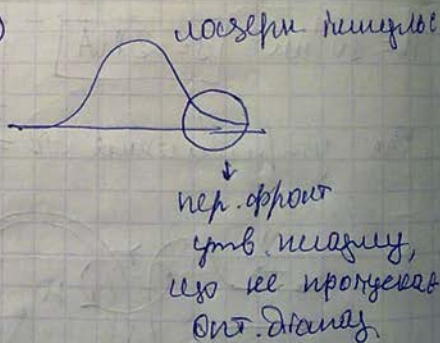 )
лазерн імпульс
пер. фронт
утв. плазму,
що не пропускає
опт. діапаз.